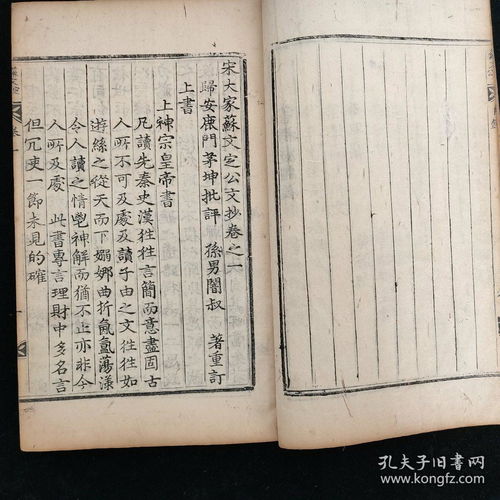 宋大家蘇文定公文抄卷之一
歸安鹿門茅坤批評 孫男闇叔 著重訂
上書
上神宗皇帝書
凡讀先秦史漢徃徃言簡而意盡固古
人所不可及處及讀子由之文徃徃如
遊絲之從天而下嫋娜曲折氤氳蕩漾
令人讀之情鬯神解而猶不止亦非今
人所及處 此書專言理財中多名言
但冗吏一節未見的確
孔夫子旧書网
www.kongfz.com